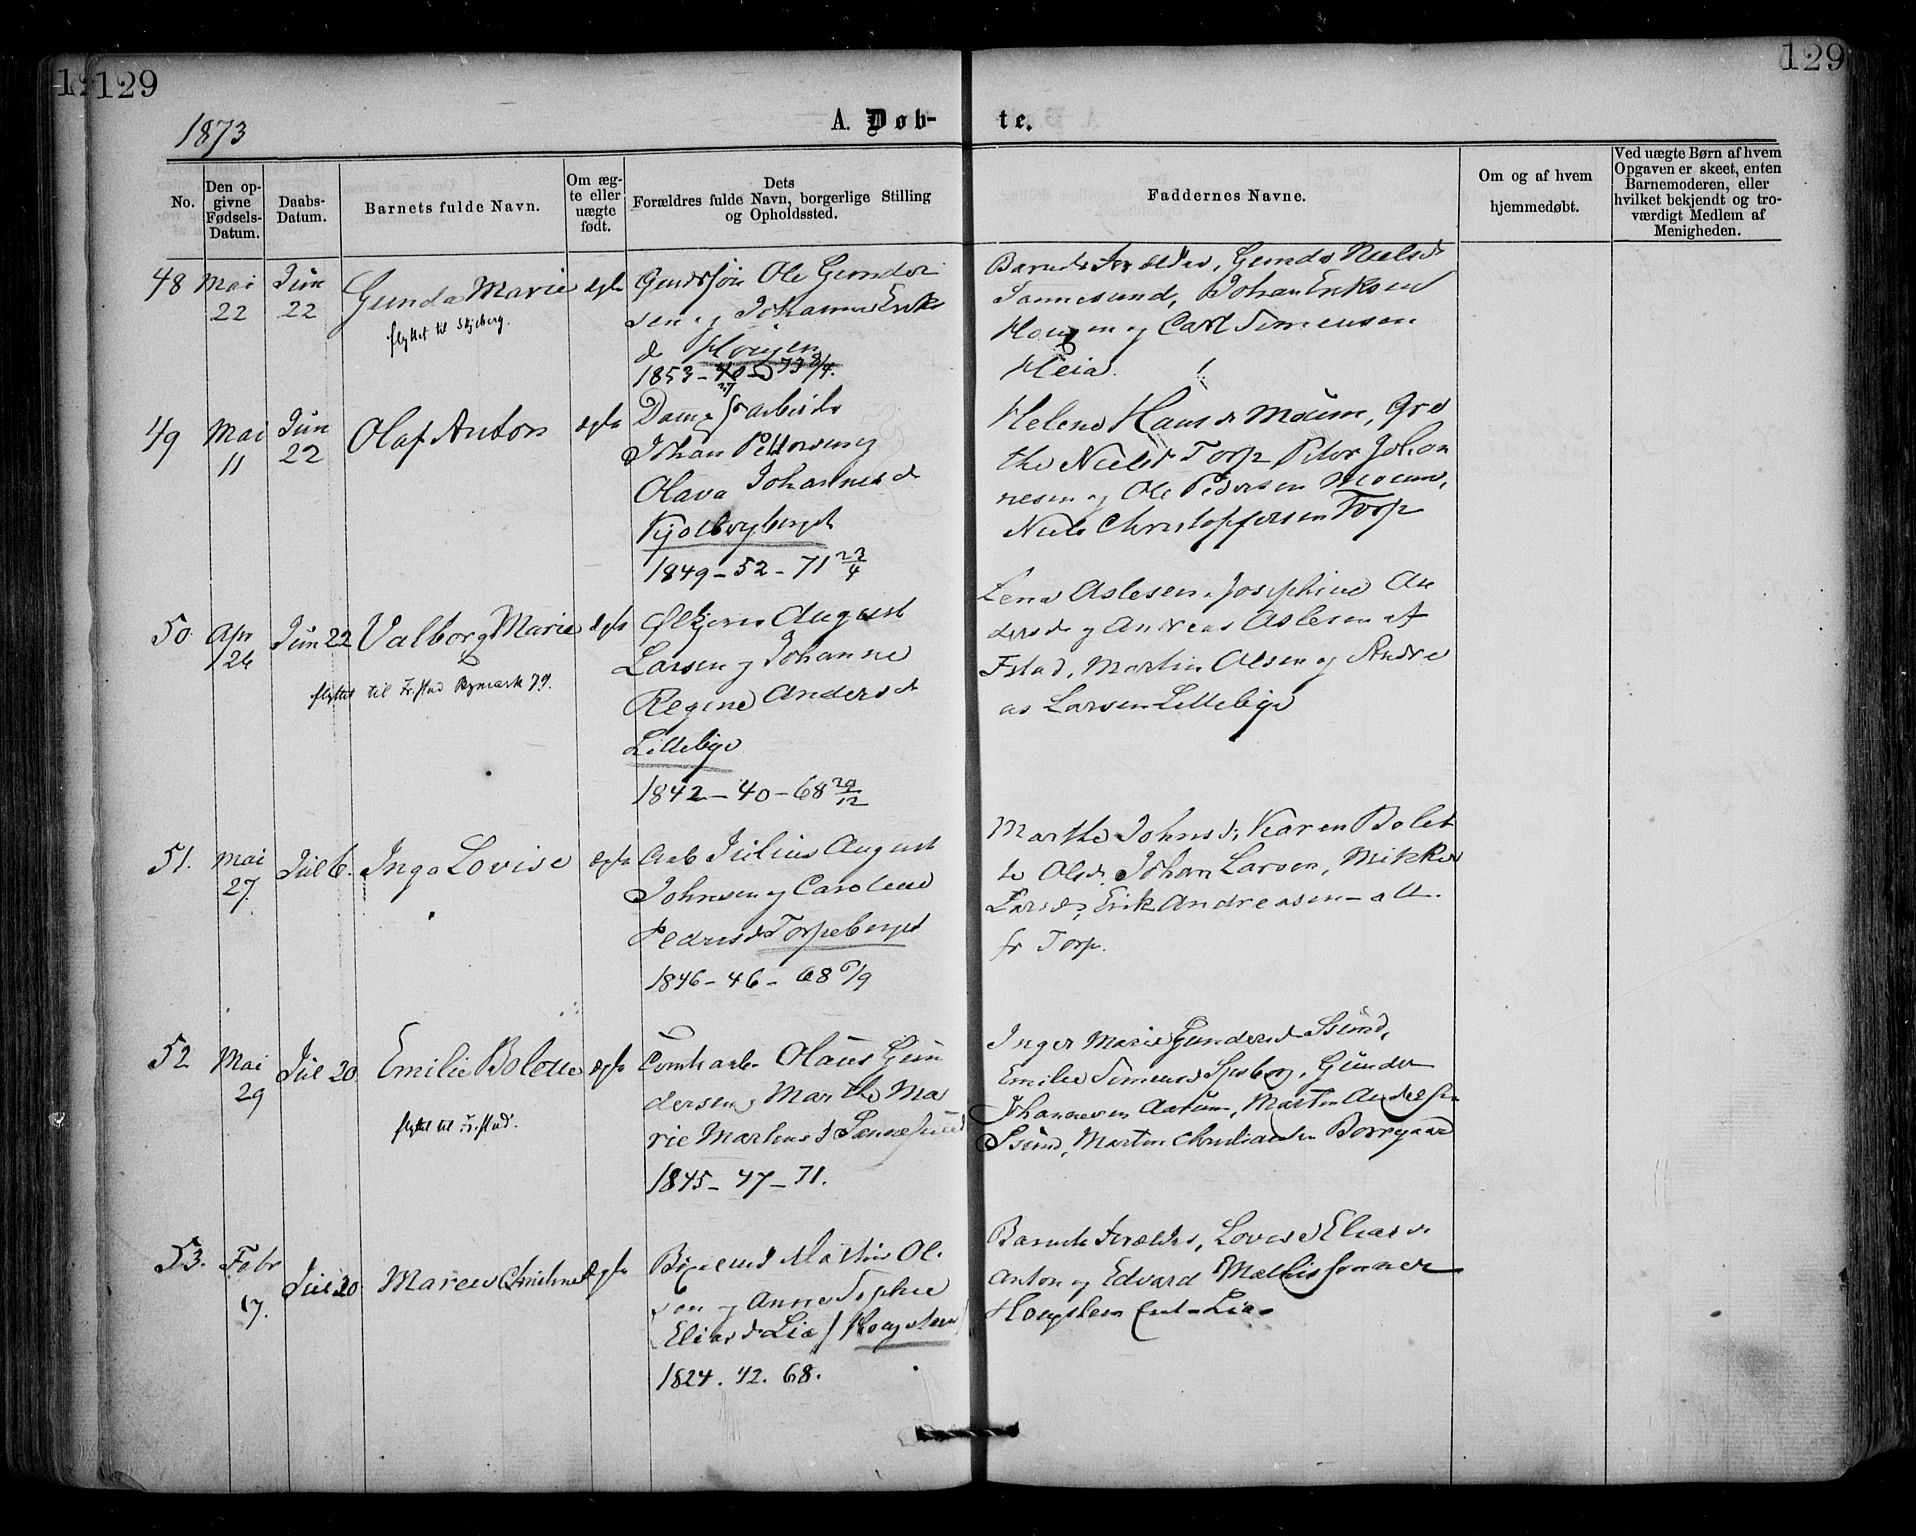 129
129
1873
A. Døb-
te.
No.
Den op-
givne
Fødsels-
Datum.
Daabs-
Datum.
Barnets fulde Navn.
Om æg-
te eller
uægte
født.
Dets
Forældres fulde Navn, borgerlige Stilling
og Opholdssted.
Faddernes Navne.
Om og af hvem
hjemmedøbt.
Ved uægte Børn af hvem
Opgaven er skeet, enten
Barnemoderen, eller
hvilket bekjendt og tro-
værdigt Medlem af
Menigheden.
48
Mai
22
Jun
22
Gunda Marie
flyttet til Skjeberg.
ægte
Ole Gunder
sen og Johanne Eriks
d Hougen
1853 - 73
Barnets Forældre, Niels d
Sannesund, Johan Eriksen
Hougen og Carl Simensen
Heia
49
Mai
11
Jun
22
Olaf Anton
ægte
Johan Pettersen og
Olava Johannes d
Kjolbergberget
1849 - 52 - 71 23/4
Helene Hans d Moum, Gre
the Niels d Torp Peter Johan
nesen og Ole Pedersen Moum,
Niels Christoffersen Torp
50.
Apr
24
Jun 22
Valborg Marie
flyttet til Fr.stad Bymark 79.
ægte
August
Larsen og Johanne
Regine Anders d
Lillebye
1842 - 40 - 68 29/12
Lena Aslesen, Josephine An
ders d og Andreas Aslesen af
Fstad, Martin Olsen og Andre
as Larsen Lillebye
51.
Mai
27.
Jul 6.
Inga Lovise
ægte
Arb Julius August
Johnsen og Caroline
Peders d Torpeberget
1846 - 46 - 68 6/9
Marthe Johns d, Karen Bolet
te Ols d, Johan Larsen, Mikke
Lars d, Erik Andreasen - alle
fr Torp.
52
Mai
29
Jul 20
Emilie Bolette
flyttet til Fr.stad.
ægte
Tomtearb Olaus Gun
dersen og Marthe Ma
rie Martins d Sannesund
1845 - 47 - 71.
Inger Marie Gunders d Ssund,
Emilie Simens d, Gunder
Johannesen Aarum, Martin Andersen
Ssund, Martin Christiansen Borregaard
53.
Febr
17.
Jul 20
Ægte
Mathis Ol
sen og Anne Sophie
Elias d Lie / Hougsteen /
1824. 42. 68.
Barnets Forældre, Lovise Elias d
Anton og Edvard Mathissønner
Hougsteen Lie